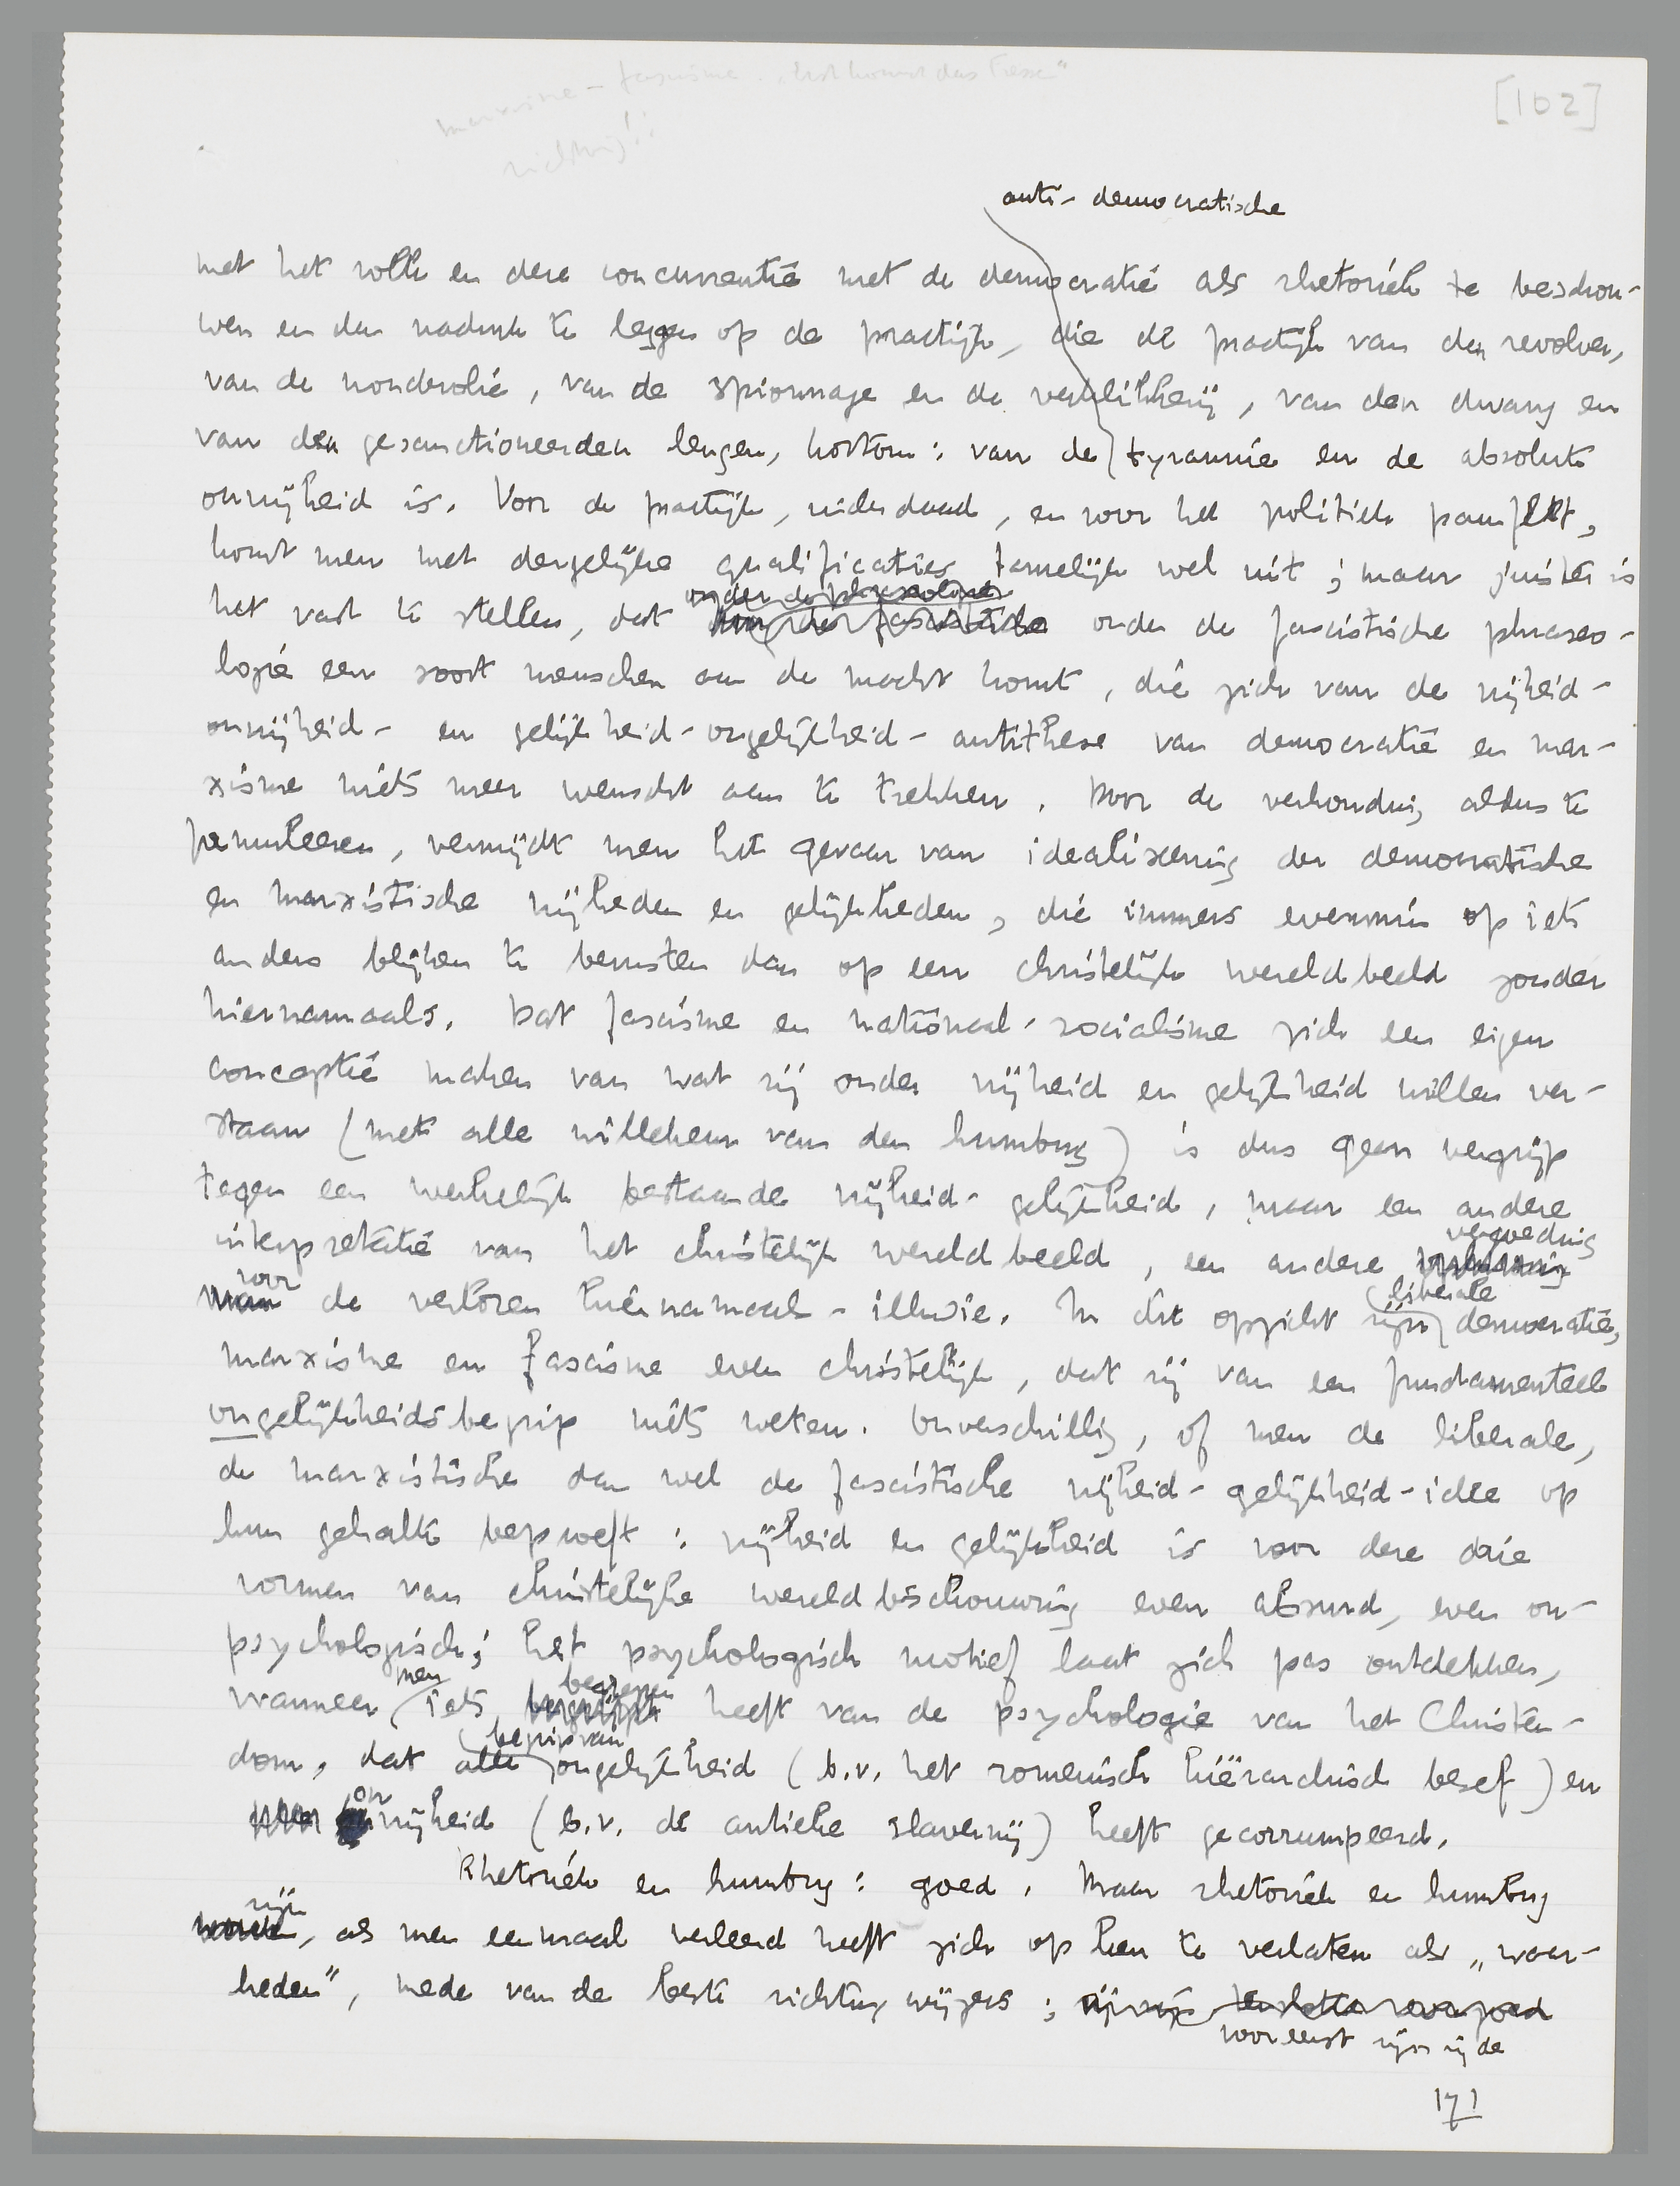 marxisme – fascisme. „Erst kommt das Fressen"
richtig!!
[102]
anti-democratische
met het volk en deze concurrentie met de democratie als rhetoriek te beschou-
wen en den nadruk te leggen op de practijk, die de practijk van den revolver,
van de wonderolie, van de spionnage en de verklikkerij, van den dwang en
van den gesanctioneerden leugen, kortom: van de tyrannie en de absolute
onvrijheid is. Voor de practijk, inderdaad, en voor het politiek pamflet,
komt men met dergelijke qualificaties tamelijk wel uit; maar juister is
onder de phraseologie
het vast te stellen, dat onder de fascistische phraseo-
logie een soort menschen aan de macht komt, die zich van de vrijheid-
onvrijheid- en gelijkheid-ongelijkheid-antithese van democratie en mar-
xisme niets meer wenscht aan te trekken. Door de verhouding aldus te
formuleeren, vermijdt men het gevaar van idealiseering der democratische
en marxistische vrijheden en gelijkheden, die immers evenmin op iets
anders blijken te berusten dan op een christelijk wereldbeeld zonder
hiernamaals. Dat fascisme en nationaal-socialisme zich een eigen
conceptie maken van wat zij onder vrijheid en gelijkheid willen ver-
staan (met alle willekeur van den humbug) is dus geen vergrijp
tegen een werkelijk bestaande vrijheid-gelijkheid, maar een andere
vergoeding
interpretatie van het christelijk wereldbeeld, een andere
voor liberale
de verloren hiernamaals-illusie. In dit opzicht zijn democratie,
marxisme en fascisme even christelijk, dat zij van een fundamenteele
ongelijkheidsbegrip niets weten. Onverschillig, of men de liberale,
de marxistische dan wel de fascistische vrijheid-gelijkheid-idee op
hun gehalte beproeft: vrijheid en gelijkheid is voor deze drie
vormen van christelijke wereldbeschouwing even absurd, even on-
psychologisch; het psychologisch motief laat zich pas ontdekken,
men begrepen
wanneer iets heeft van de psychologie van het Christen-
begrip van
dom, dat alle ongelijkheid (b.v. het romeinsch hiërarchisch besef) en
on
vrijheid (b.v. de antieke slavernij) heeft gecorrumpeerd.
Rhetoriek en humbug: goed. Maar rhetoriek en humbug
zijn
, als men eenmaal verleerd heeft zich op hen te verlaten als „waar-
heden", mede van de beste richtingwijzers; zij zijn
voor eerst zijn zij de
171